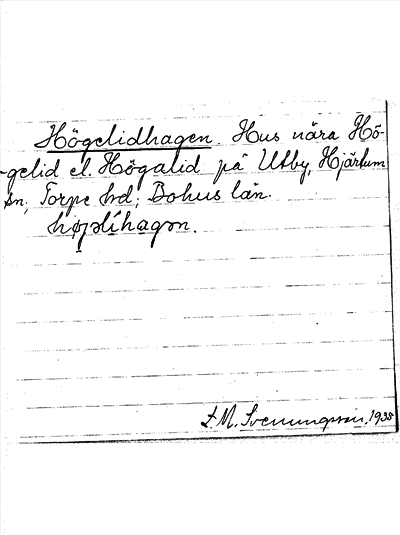 Högelidhagen. Hus nära Hö-
-gelid el. Högalid på Utby, Hjärtum
sn, Torpe hd; Bohus län.
S. M. Svenungsson, 1935